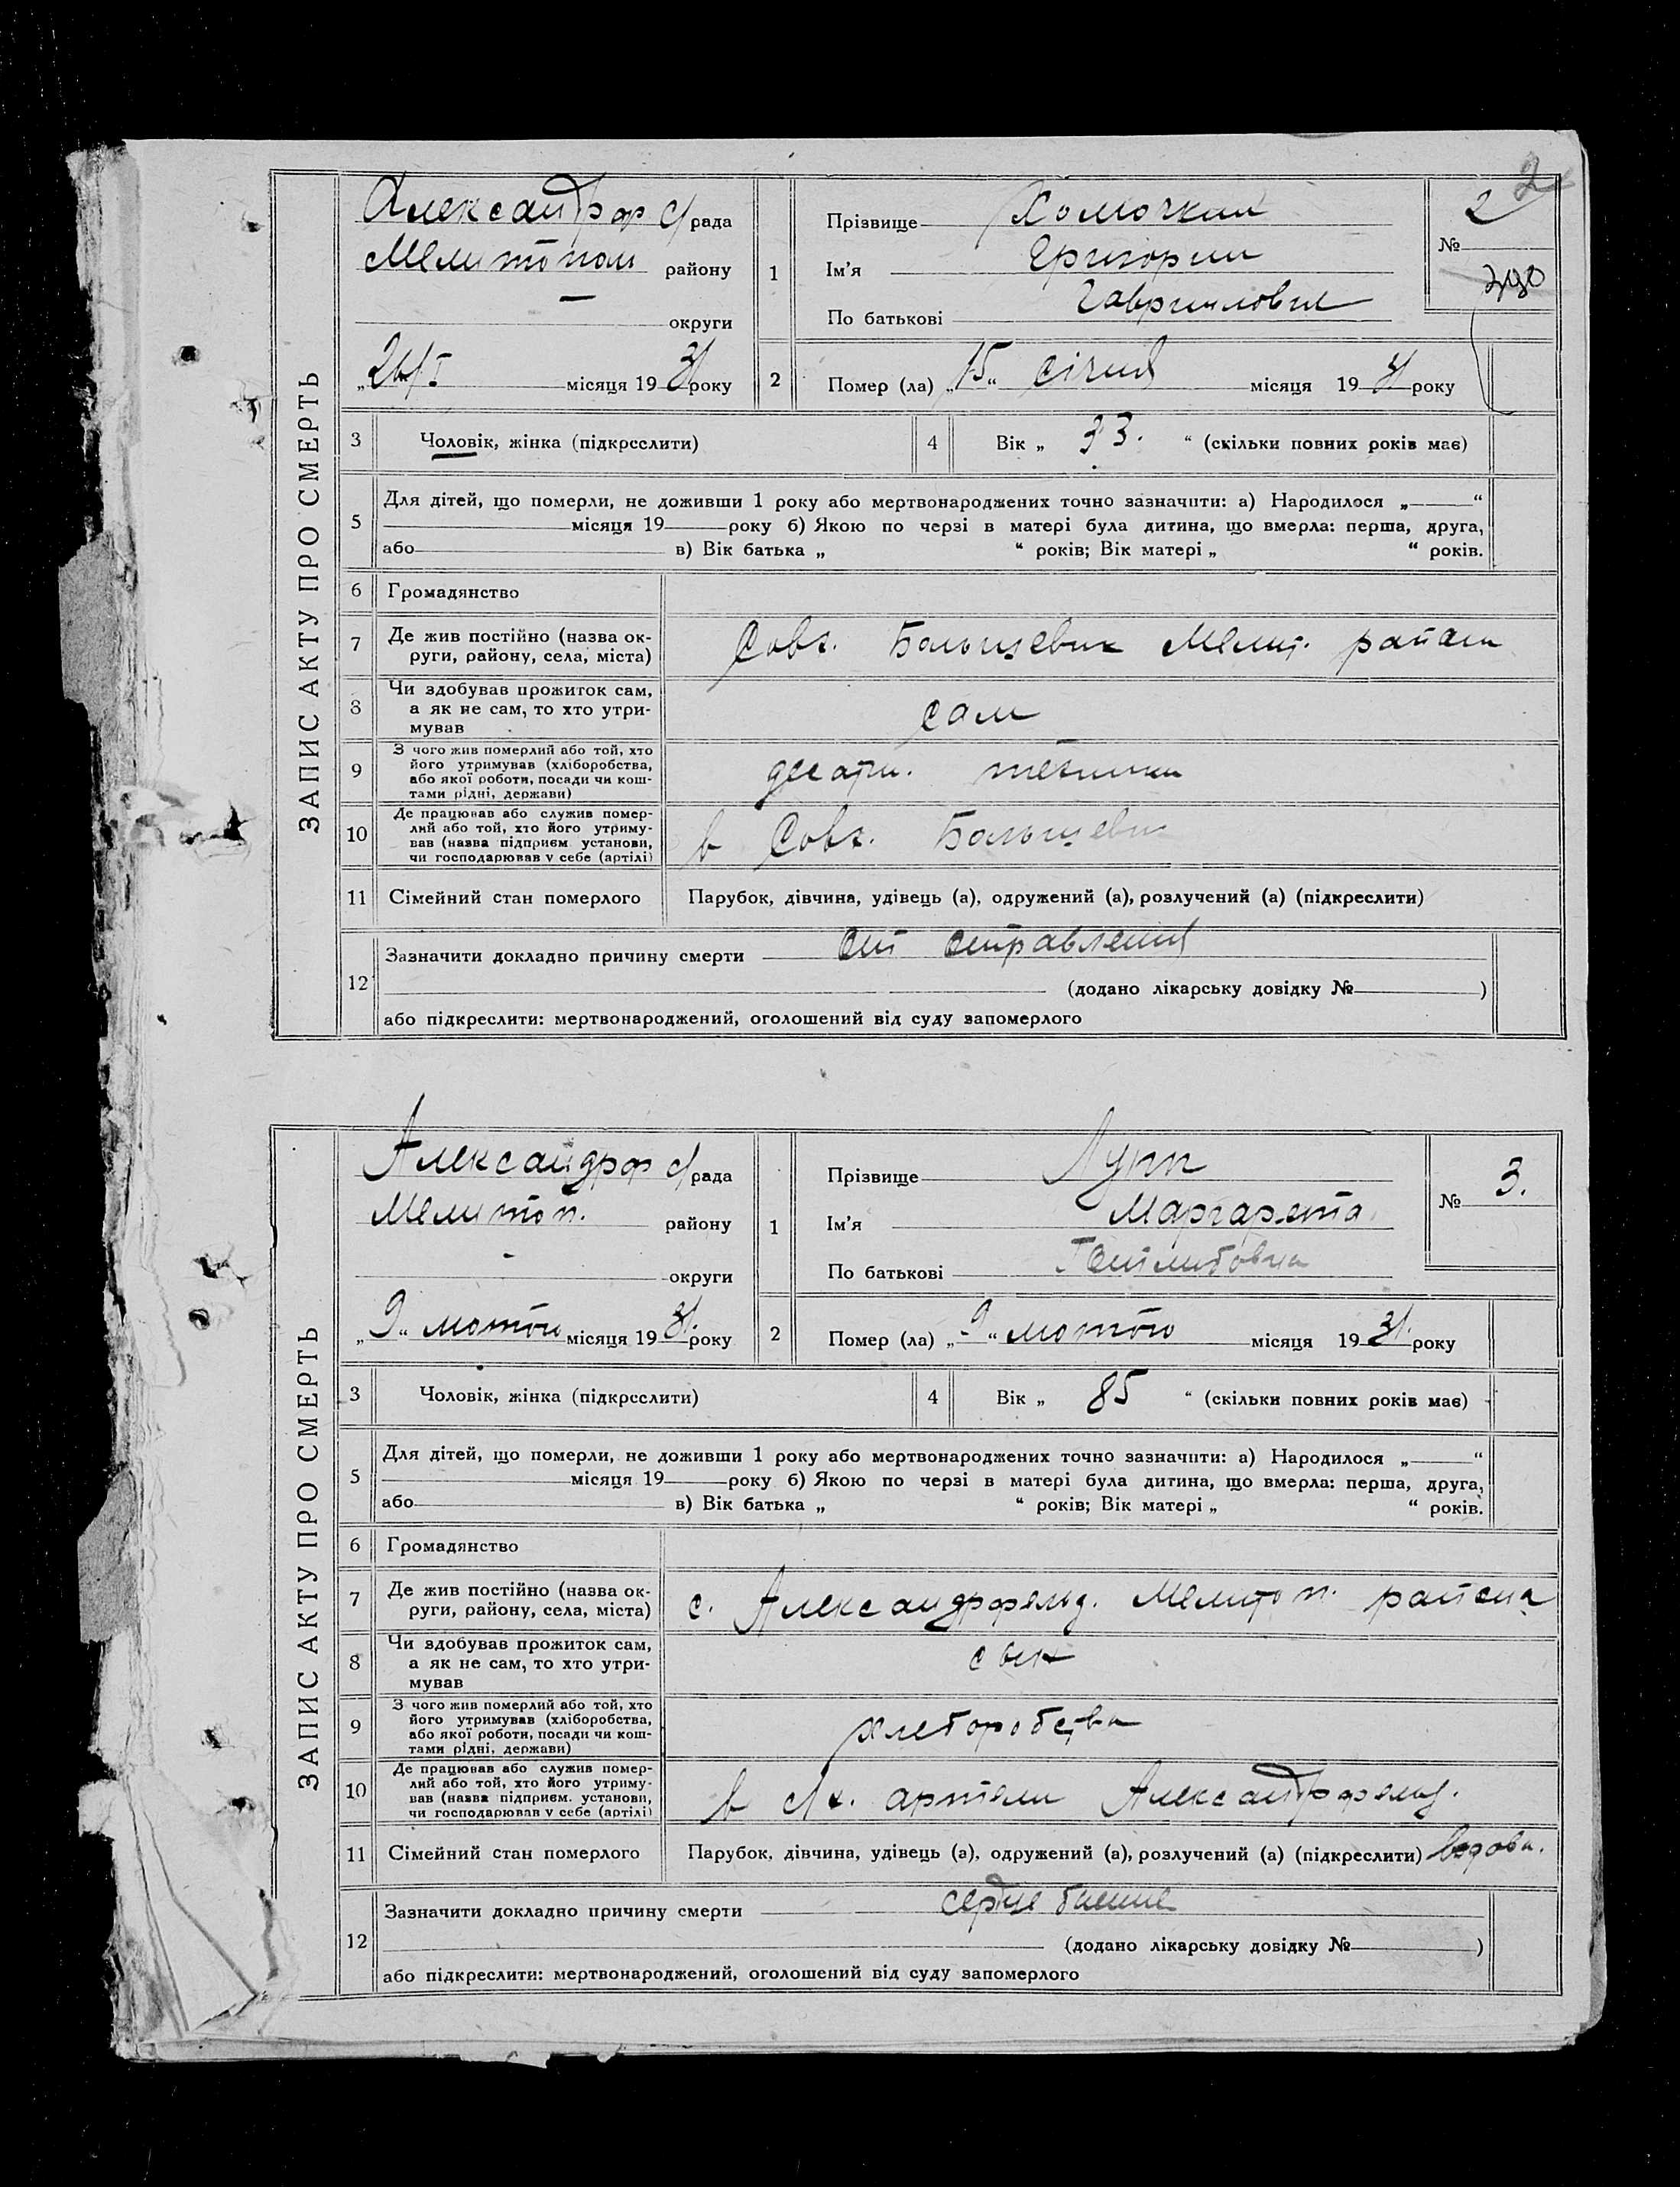 2
ЗАПИС АКТУ ПРО СМЕРТЬ
Александрф с/рада
Мелитопол району
— округи
„24/I місяця 1931 року
1
Прізвище
Ім'я Григорий
По батькові Гавриилович
№ 2
2
Помер (ла) „15“ січня місяця 1931 року
3
Чоловік, жінка (підкреслити)
4
Вік „ 33. “ (скільки повних років має)
5
Для дітей, що померли, не доживши 1 року або мертвонароджених точно зазначити: а) Народилося „ “
місяця 19 року б) Якою по черзі в матері була дитина, що вмерла: перша, друга,
або в) Вік батька „ “ років; Вік матері „ “ років.
6
Громадянство
7
Де жив постійно (назва ок-
руги, району, села, міста)
Совх. Большевик Мелит. района
8
Чи здобував прожиток сам,
а як не сам, то хто утри-
мував
сам
9
З чого жив померлий або той, хто
його утримував (хліборобства,
або якої роботи, посади чи кош-
тами рідні, держави)
10
Де працював або служив помер-
лий або той, хто його утриму-
вав (назва підприєм. установи,
чи господарював у себе (артілі)
в Совх. Большевик
11
Сімейний стан померлого
Парубок, дівчина, удівець (а), одружений (а), розлучений (а) (підкреслити)
12
Зазначити докладно причину смерти от отравления
(додано лікарську довідку № )
або підкреслити: мертвонароджений, оголошений від суду запомерлого
ЗАПИС АКТУ ПРО СМЕРТЬ
Александрф с/рада
Мелитоп. району
- округи
„9“ лютого місяця 1931. року
1
Прізвище Лупп
Ім'я Маргарета
По батькові Готлибовна
№ 3.
2
Помер (ла) „9“ лютого місяця 1931. року
3
Чоловік, жінка (підкреслити)
4
Вік „ 85 “ (скільки повних років має)
5
Для дітей, що померли, не доживши 1 року або мертвонароджених точно зазначити: а) Народилося „ “
місяця 19 року б) Якою по черзі в матері була дитина, що вмерла: перша, друга,
або в) Вік батька „ “ років; Вік матері „ “ років.
6
Громадянство
7
Де жив постійно (назва ок-
руги, району, села, міста)
с. Александрфельд. Мелитоп. района
8
Чи здобував прожиток сам,
а як не сам, то хто утри-
мував
сын
9
З чого жив померлий або той, хто
його утримував (хліборобства,
або якої роботи, посади чи кош-
тами рідні, держави)
хлеборобства
10
Де працював або служив помер-
лий або той, хто його утриму-
вав (назва підприєм. установи,
чи господарював у себе (артілі)
в с/х. артели Александрфельд.
11
Сімейний стан померлого
Парубок, дівчина, удівець (а), одружений (а), розлучений (а) (підкреслити) вдова.
12
Зазначити докладно причину смерти сердце биение
(додано лікарську довідку № )
або підкреслити: мертвонароджений, оголошений від суду запомерлого